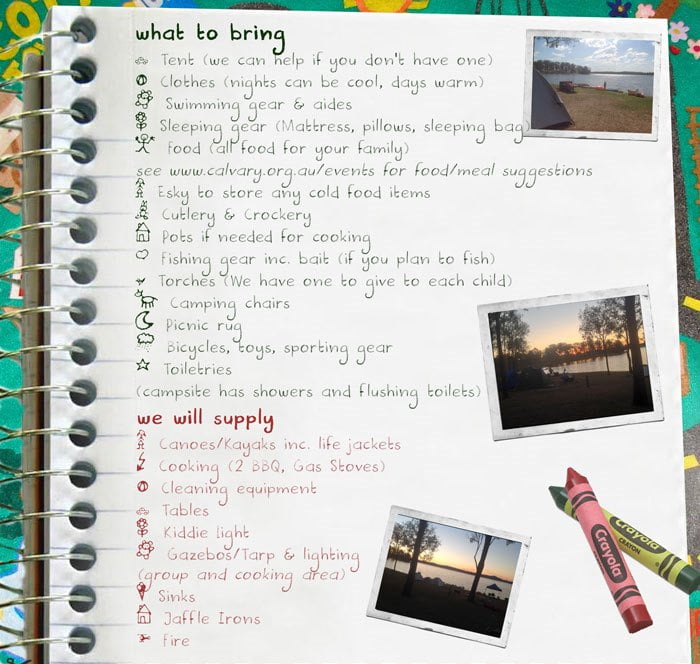 what to bring
Tent (we can help if you don't have one)
Clothes (nights can be cool, days warm)
Swimming gear & aides
Sleeping gear (Mattress, pillows, sleeping bag)
Food (all food for your family)
see www.calvary.org.au/events for food/meal suggestions
Esky to store any cold food items
Cutlery & Crockery
Pots if needed for cooking
Fishing gear inc. bait (if you plan to fish)
Torches (We have one to give to each child)
Camping chairs
Picnic rug
Bicycles, toys, sporting gear
Toiletries
(campsite has showers and flushing toilets)
we will supply
Canoes/Kayaks inc. life jackets
Cooking (2 BBQ, Gas Stoves)
Cleaning equipment
Tables
Kiddie light
Gazebos/Tarp & lighting
(group and cooking area)
Sinks
Jaffle Irons
Fire
Crayola
Crayola
CRAYON